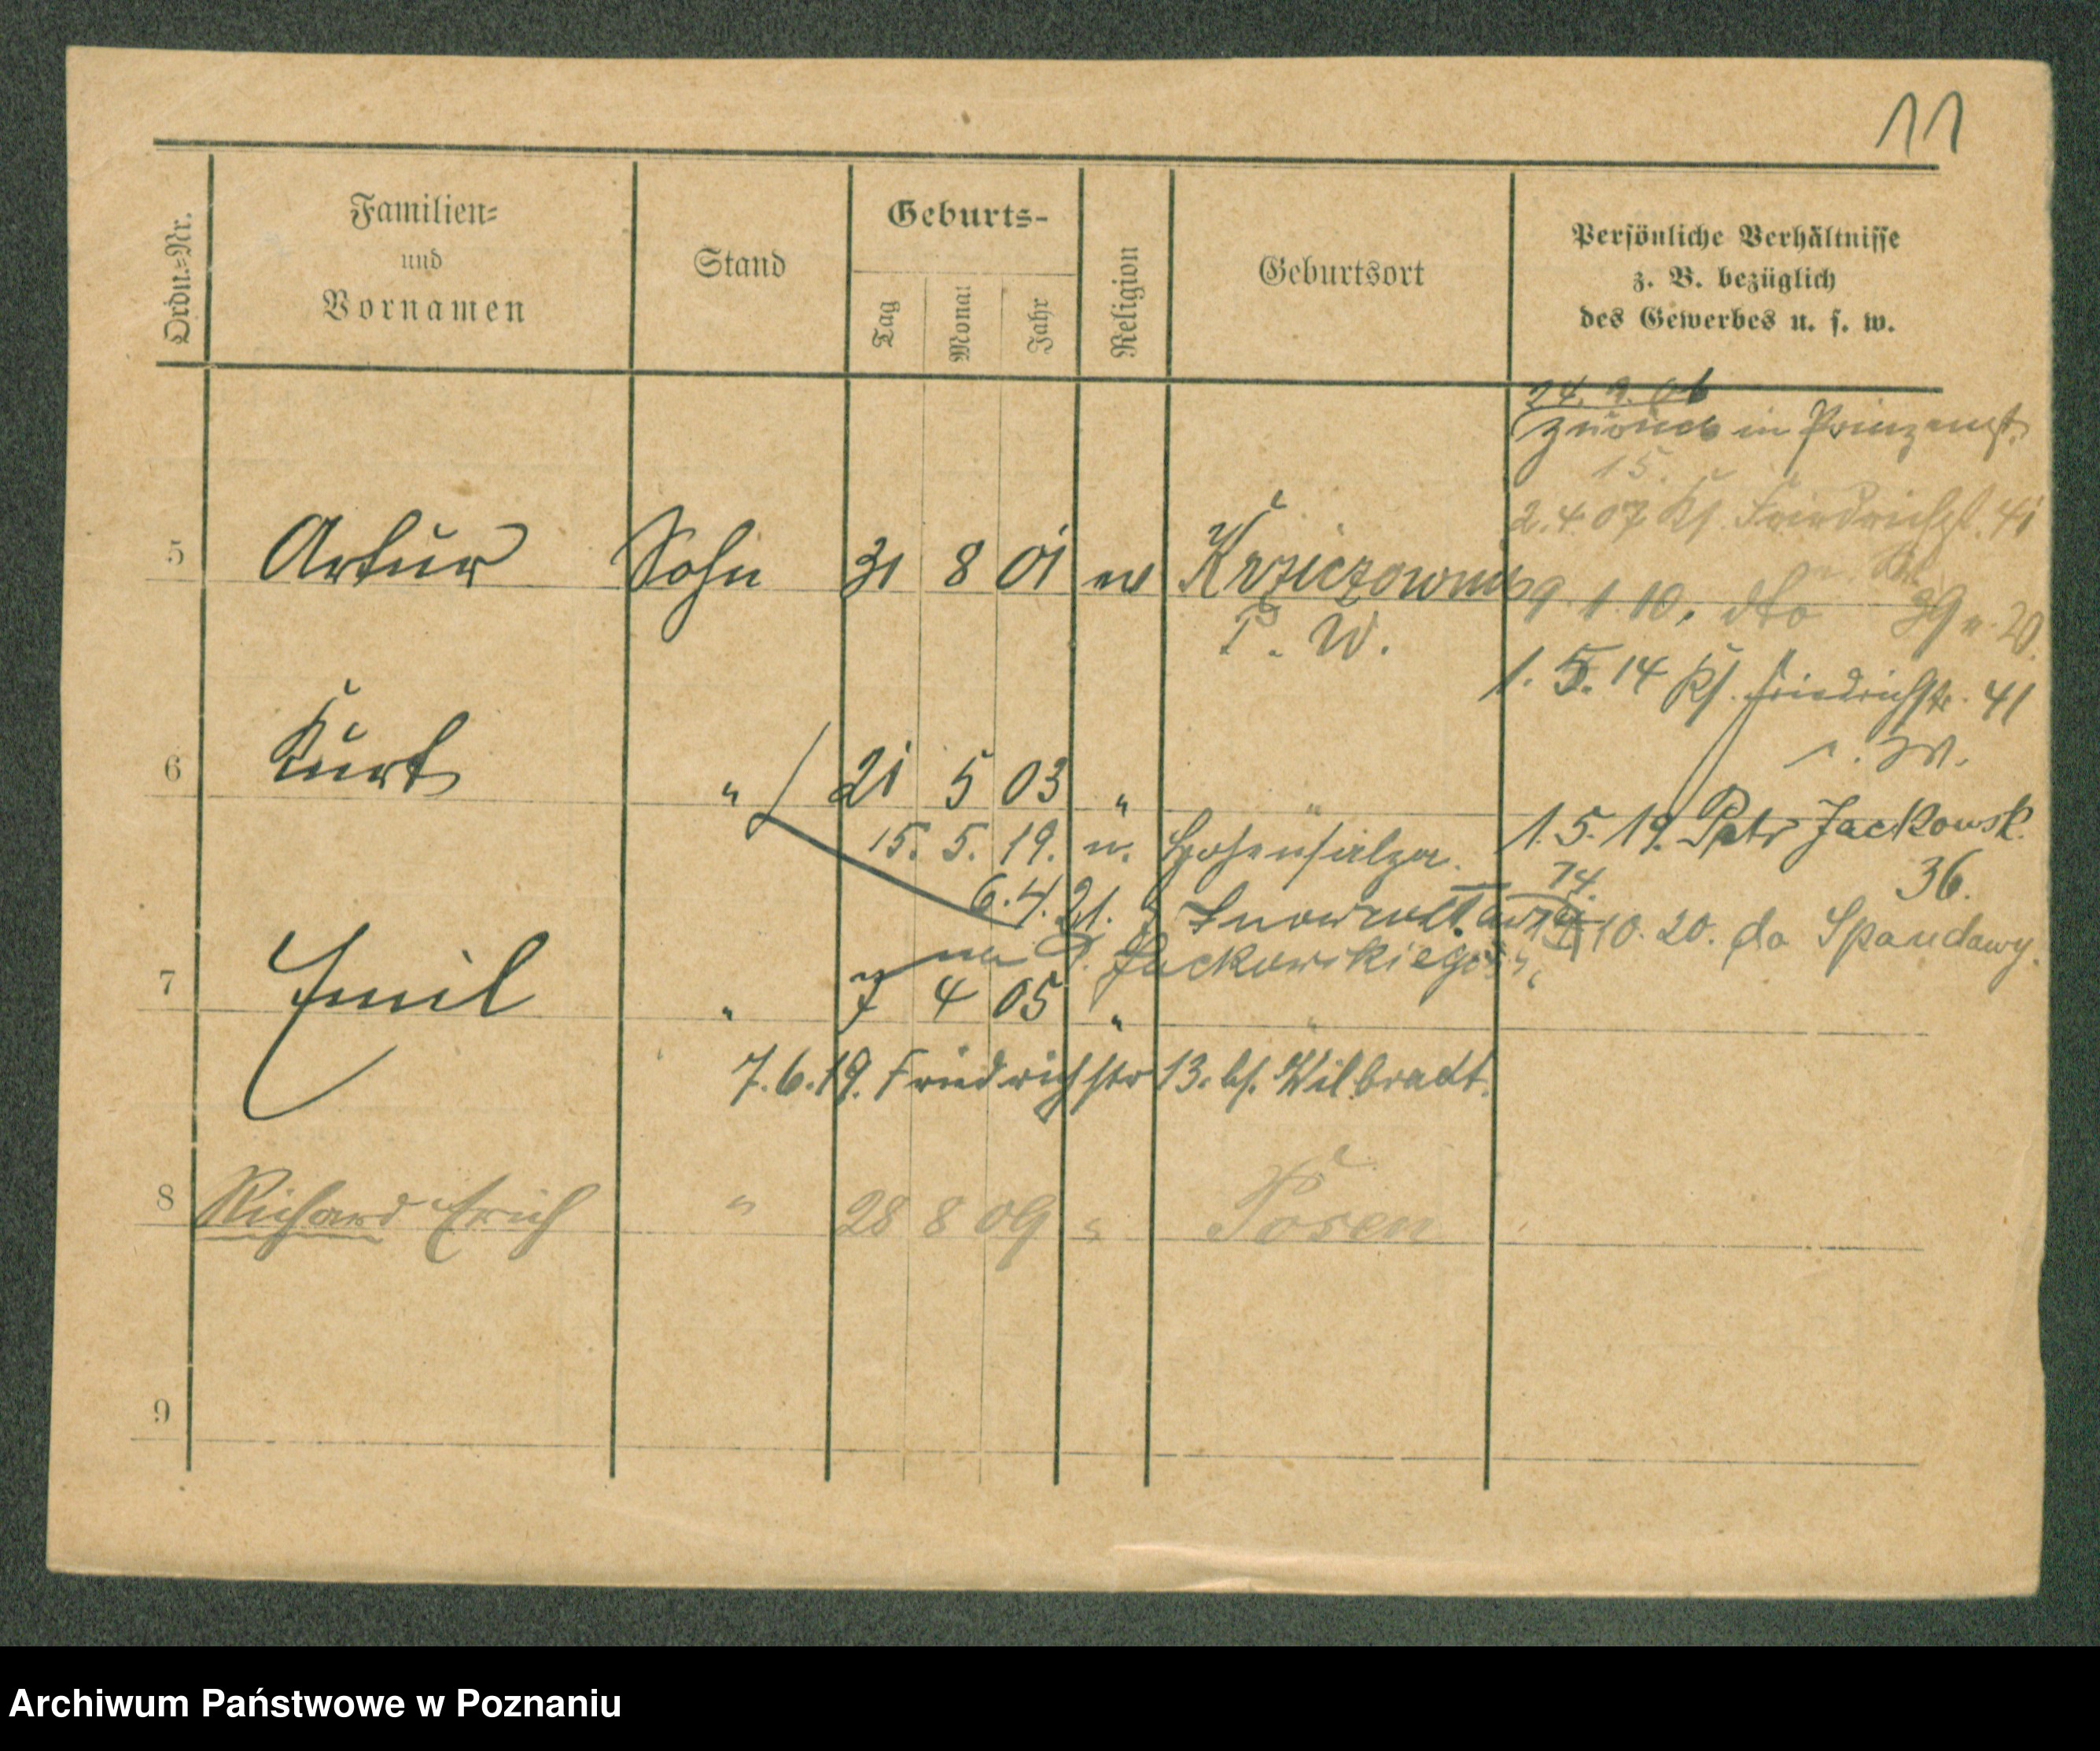 11
Ordn.-Nr.
Familien-
und
Vornamen
Stand
Geburts-
Tag
Monat
Jahr
Religion
Geburtsort
Persönliche Verhältnisse
z. B. bezüglich
des Gewerbes u. s. w.
24. 9. 06
zurück in
15.
2. 4 07 Friedrichst. 41
5 Artur Sohn 31 8 01 ev
P. W.
9. 1. 10. dto 39 20
1. 5. 14 Friedrichstr. 41
6 Kurt " 21 5 03 " "
15. 5. 19. n. Hohensalza.
1. 5. 19. Jackowsk.
36.
6. 4. 21.
Jackowskiego
74.
10. 20. do Spandawy.
7 Emil " 7 4 05 " "
7. 6. 19. Friedrichstr 13. bei Wilbradt.
8 Richard Erich " 28 8 09 " Posen
9
Archiwum Państwowe w Poznaniu